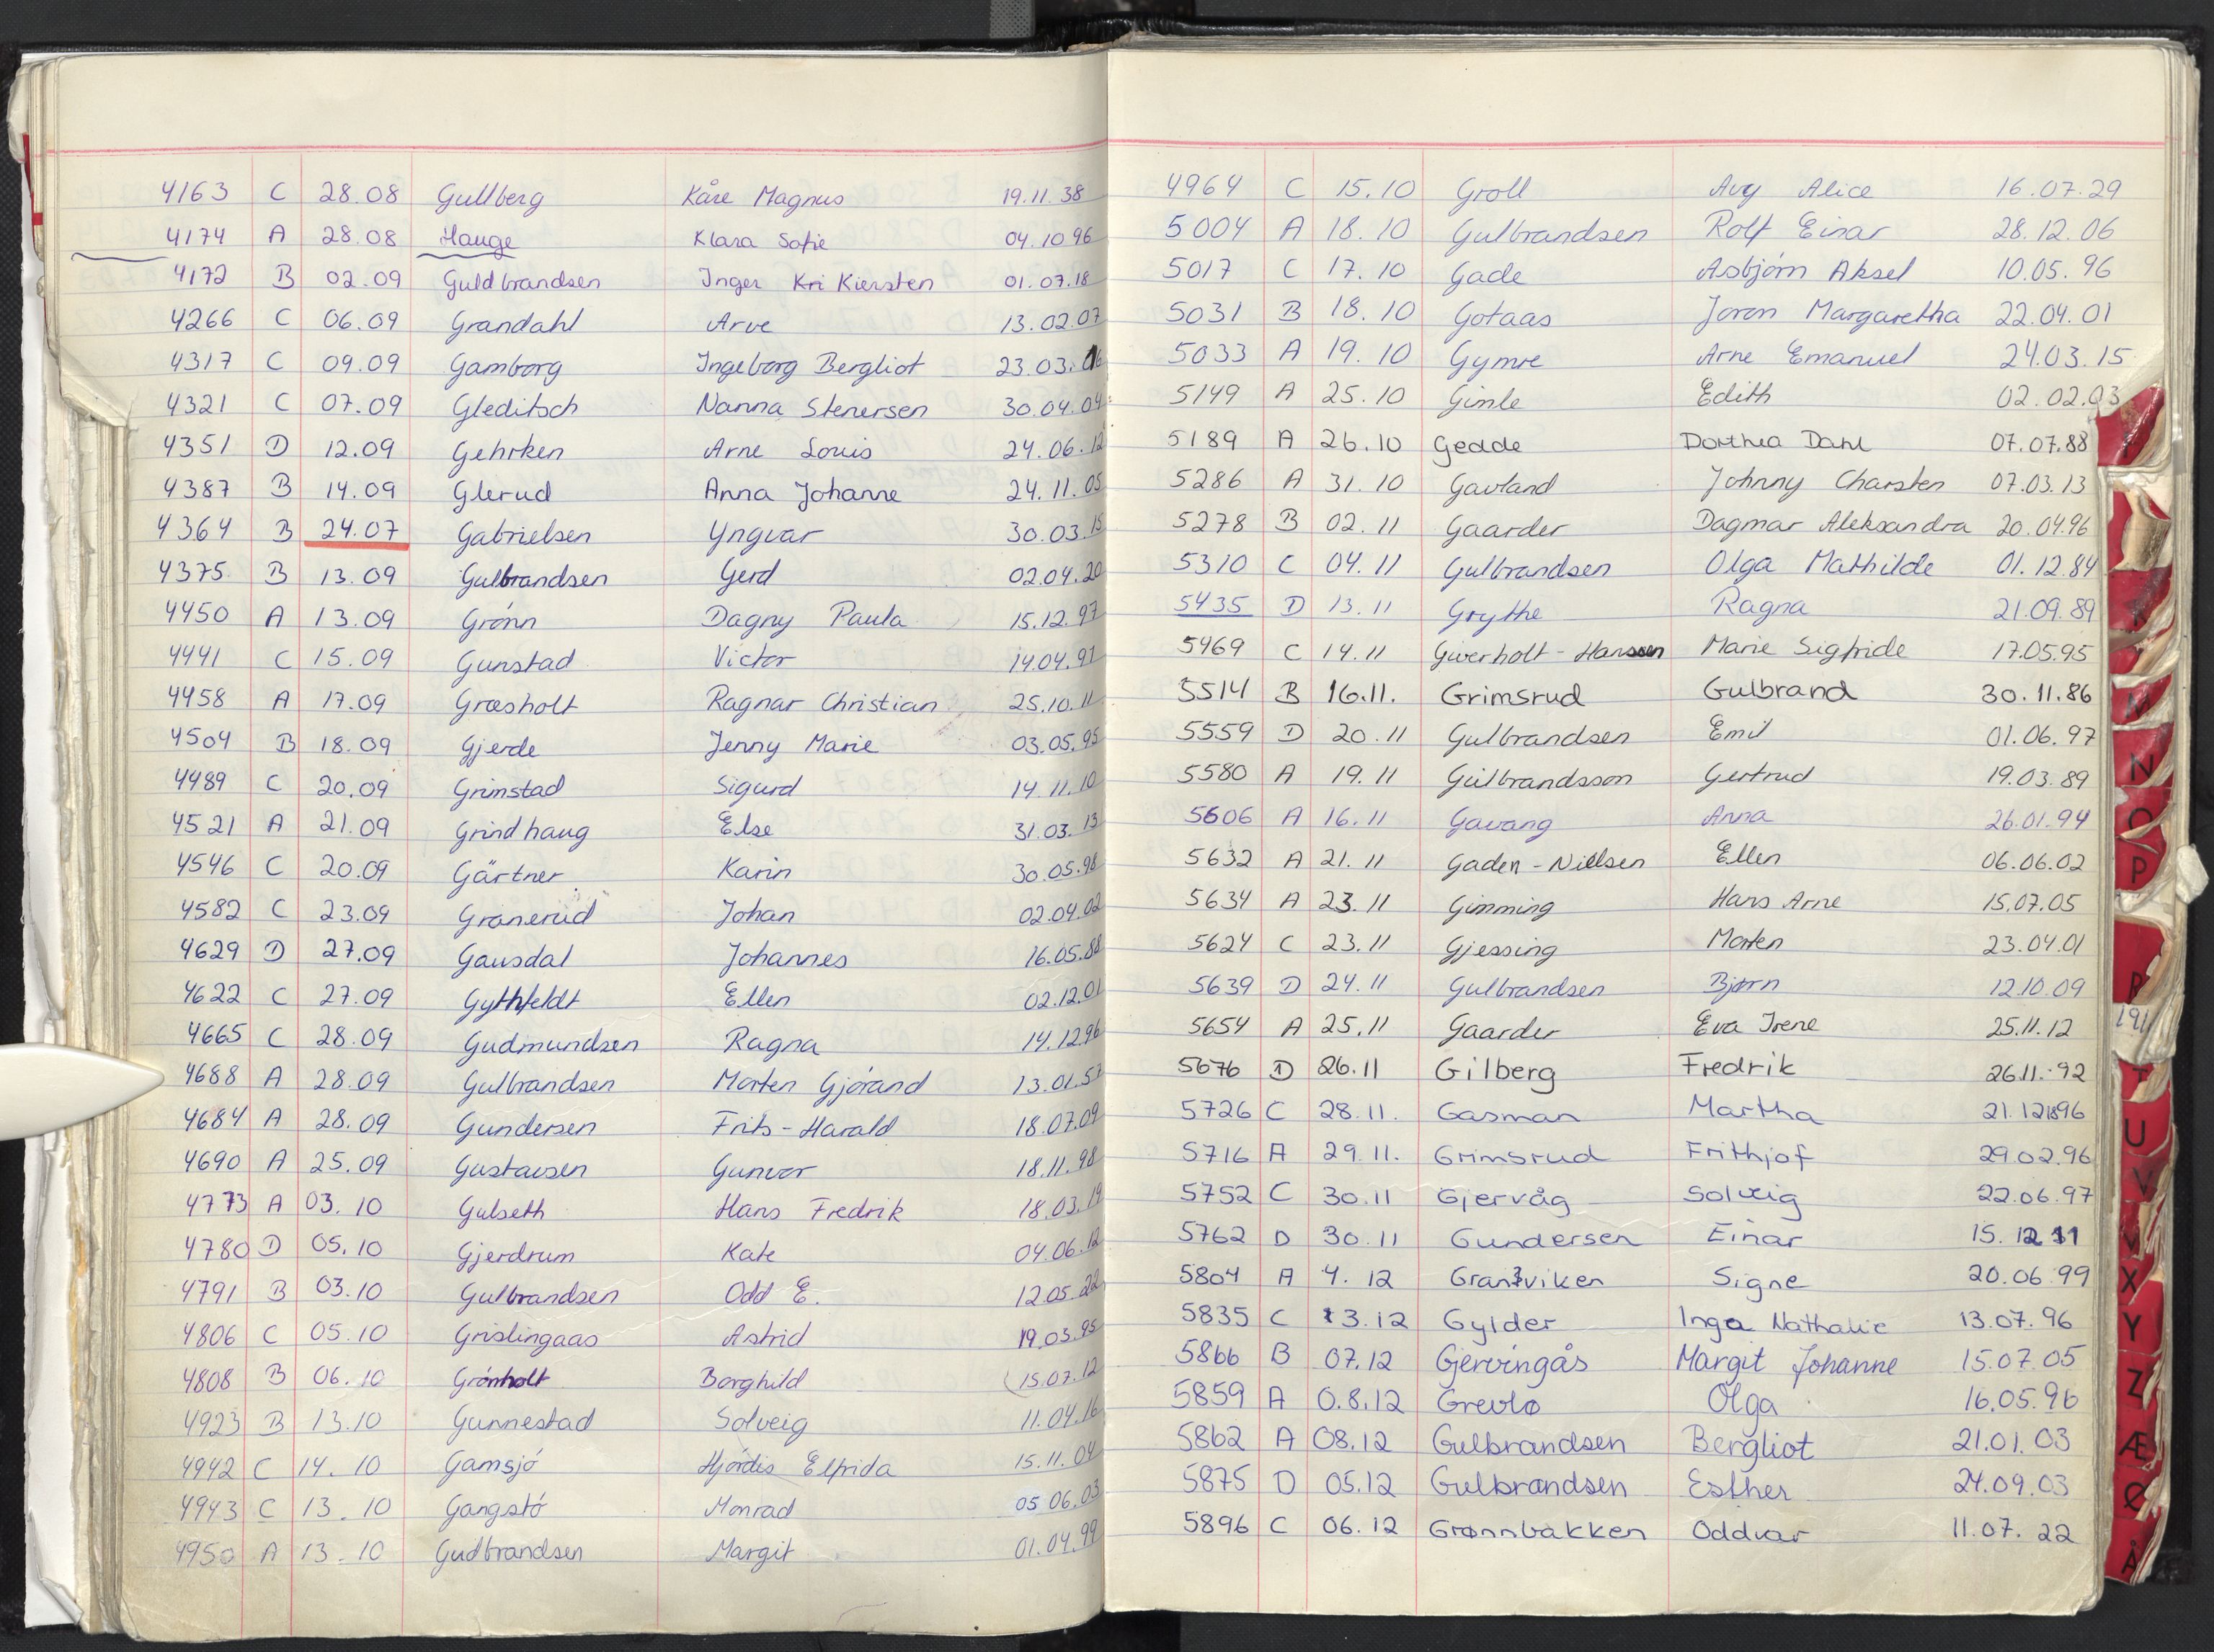 4163 C 28.08 Gullberg Kåre Magnus 19.11.38
4174 A 28.08 Hauge Klara Sofie 04.10.96
4172 B 02.09 Guldbrandsen Inger Kri Kiersten 01.07.18
4266 C 06.09 Grandahl Arve 13.02.07
4317 C 09.09 Gamborg Ingeborg Bergliot 23.03.
4321 C 07.09 Gleditsch Nanna Stenersen 30.04.04
4351 D 12.09 Gehrken Arne Louis 24.06.12
4387 B 14.09 Glerud Anna Johanne 24.11.05
4364 B 24.07 Gabrielsen Yngvar 30.03.15
4375 B 13.09 Gulbrandsen Gerd 02.04.20
4450 A 13.09 Grónn Dagny Paula 15.12.97
4441 C 15.09 Gunstad Victor 14.04.91
4458 A 17.09 Græsholt Ragnar Christian 25.10.11
4504 B 18.09 Gjerde Jenny Marie 03.05.95
4489 C 20.09 Grimstad Sigurd 14.11.10
4521 A 21.09 Grindhaug Else 31.03.13
4546 C 20.09 Gärtner Karin 30.05.98
4582 C 23.09 Granerud Johan 02.04.02
4629 D 27.09 Gausdal Johannes 16.05.88
4622 C 27.09 Gythfeldt Ellen 02.12.01
4665 C 28.09 Gudmundsen Ragna 14.12.96
4688 A 28.09 Gulbrandsen Morten Gjórand 13.01.57
4684 A 28.09 Gundersen Frits-Harald 18.07.09
4690 A 25.09 Gustavsen Gunvor 18.11.98
4773 A 03.10 Gulseth Hans Fredrik 18.03.19
4780 D 05.10 Gjerdrum Kate 04.06.12
4791 B 03.10 Gulbrandsen Odd E. 12.05.22
4806 C 05.10 Grislingaas Astrid 19.03.95
4808 B 06.10 Grónholt Borghild 15.07.12
4923 B 13.10 Gunnestad Solveig 11.04.16
4942 C 14.10 Gamsjó Hjórdis Elfrida 15.11.04
4943 C 13.10 Gangstó Monrad 05.06.03
4950 A 13.10 Gudbrandsen Margit 01.04.99
4964 C 15.10 Groll Avy Alice 16.07.29
5004 A 18.10 Gulbrandsen Rolf Einar 28.12.06
5017 C 17.10 Gade Asbjórn Aksel 10.05.96
5031 B 18.10 Gotaas Joron Margaretha 22.04.01
5033 A 19.10 Gymre Arne Emanuel 24.03.15
5149 A 25.10 Gimle Edith 02.02.03
5189 A 26.10 Gedde Dorthea Dahl 07.07.88
5286 A 31.10 Gavland Johnny Charsten 07.03.13
5278 B 02.11 Gaarder Dagmar Aleksandra 20.04.96
5310 C 04.11 Gulbrandsen Olga Mathilde 01.12.84
5435 D 13.11 Grythe Ragna 21.09.89
5469 C 14.11 Giverholt-Hanssen Marie Sigfride 17.05.95
5514 B 16.11. Grimsrud Gulbrand 30.11.86
5559 D 20.11 Gulbrandsen Emil 01.06.97
5580 A 19.11 Gulbrandsson Gertrud 19.03.89
5606 A 16.11 Gavang Anna 26.01.94
5632 A 21.11 Gaden-Nielsen Ellen 06.06.02
5634 A 23.11 Gimming Hans Arne 15.07.05
5624 C 23.11 Gjessing Morten 23.04.01
5639 D 24.11 Gulbrandsen Bjørn 12.10.09
5654 A 25.11 Gaarder Eva Irene 25.11.12
5676 D 26.11 Gilberg Fredrik 26.11.92
5726 C 28.11. Gasman Martha 21.12.1896
5716 A 29.11. Grimsrud Frithjof 29.02.96
5752 C 30.11 Gjervåg Solveig 22.06.97
5762 D 30.11 Gundersen Einar 15.12.11
5804 A 4.12 Signe 20.06.99
5835 C 13.12 Gylder Inga Nathalie 13.07.96
5866 B 07.12 Gjervingås Margit Johanne 15.07.05
5859 A 0.8.12 Grevlø Olga 16.05.96
5862 A 08.12 Gulbrandsen Bergliot 21.01.03
5875 D 05.12 Gulbrandsen Esther 24.09.03
5896 C 06.12 Grønnbakken Oddvar 11.07.22
M
N
O
P
R
T
U
V
X
Y
Z
Æ
Ø
Å